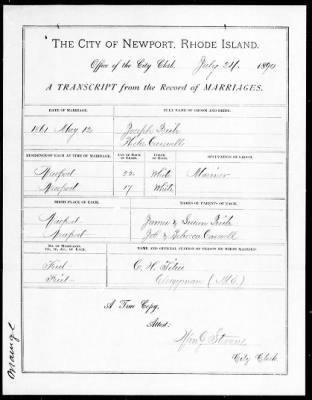 THE CITY OF NEWPORT, RHODE ISLAND.
Office of the City Clerk, July 24. 1890
A TRANSCRIPT from the Record of MARRIAGES.
DATE OF MARRIAGE. FULL NAME OF GROOM AND BRIDE.
1861 May 12 Joseph
RESIDENCE OF EACH AT TIME OF MARRIAGE. AGE OF EACH IN YEARS. COLOR OF EACH. OCCUPATION OF GROOM.
Newport 22 White Mariner
Newport 17 White
BIRTH PLACE OF EACH. NAMES OF PARENTS OF EACH.
Newport James & Susan
Newport & Rebecca
NO. OF MARRIAGE, 1ST, 2D, &C., OF EACH. NAME AND OFFICIAL STATION OF PERSON BY WHOM MARRIED
First C. H. Titus
First Clergyman
A True Copy.
Attest:
Wm G Stevens
City Clerk.